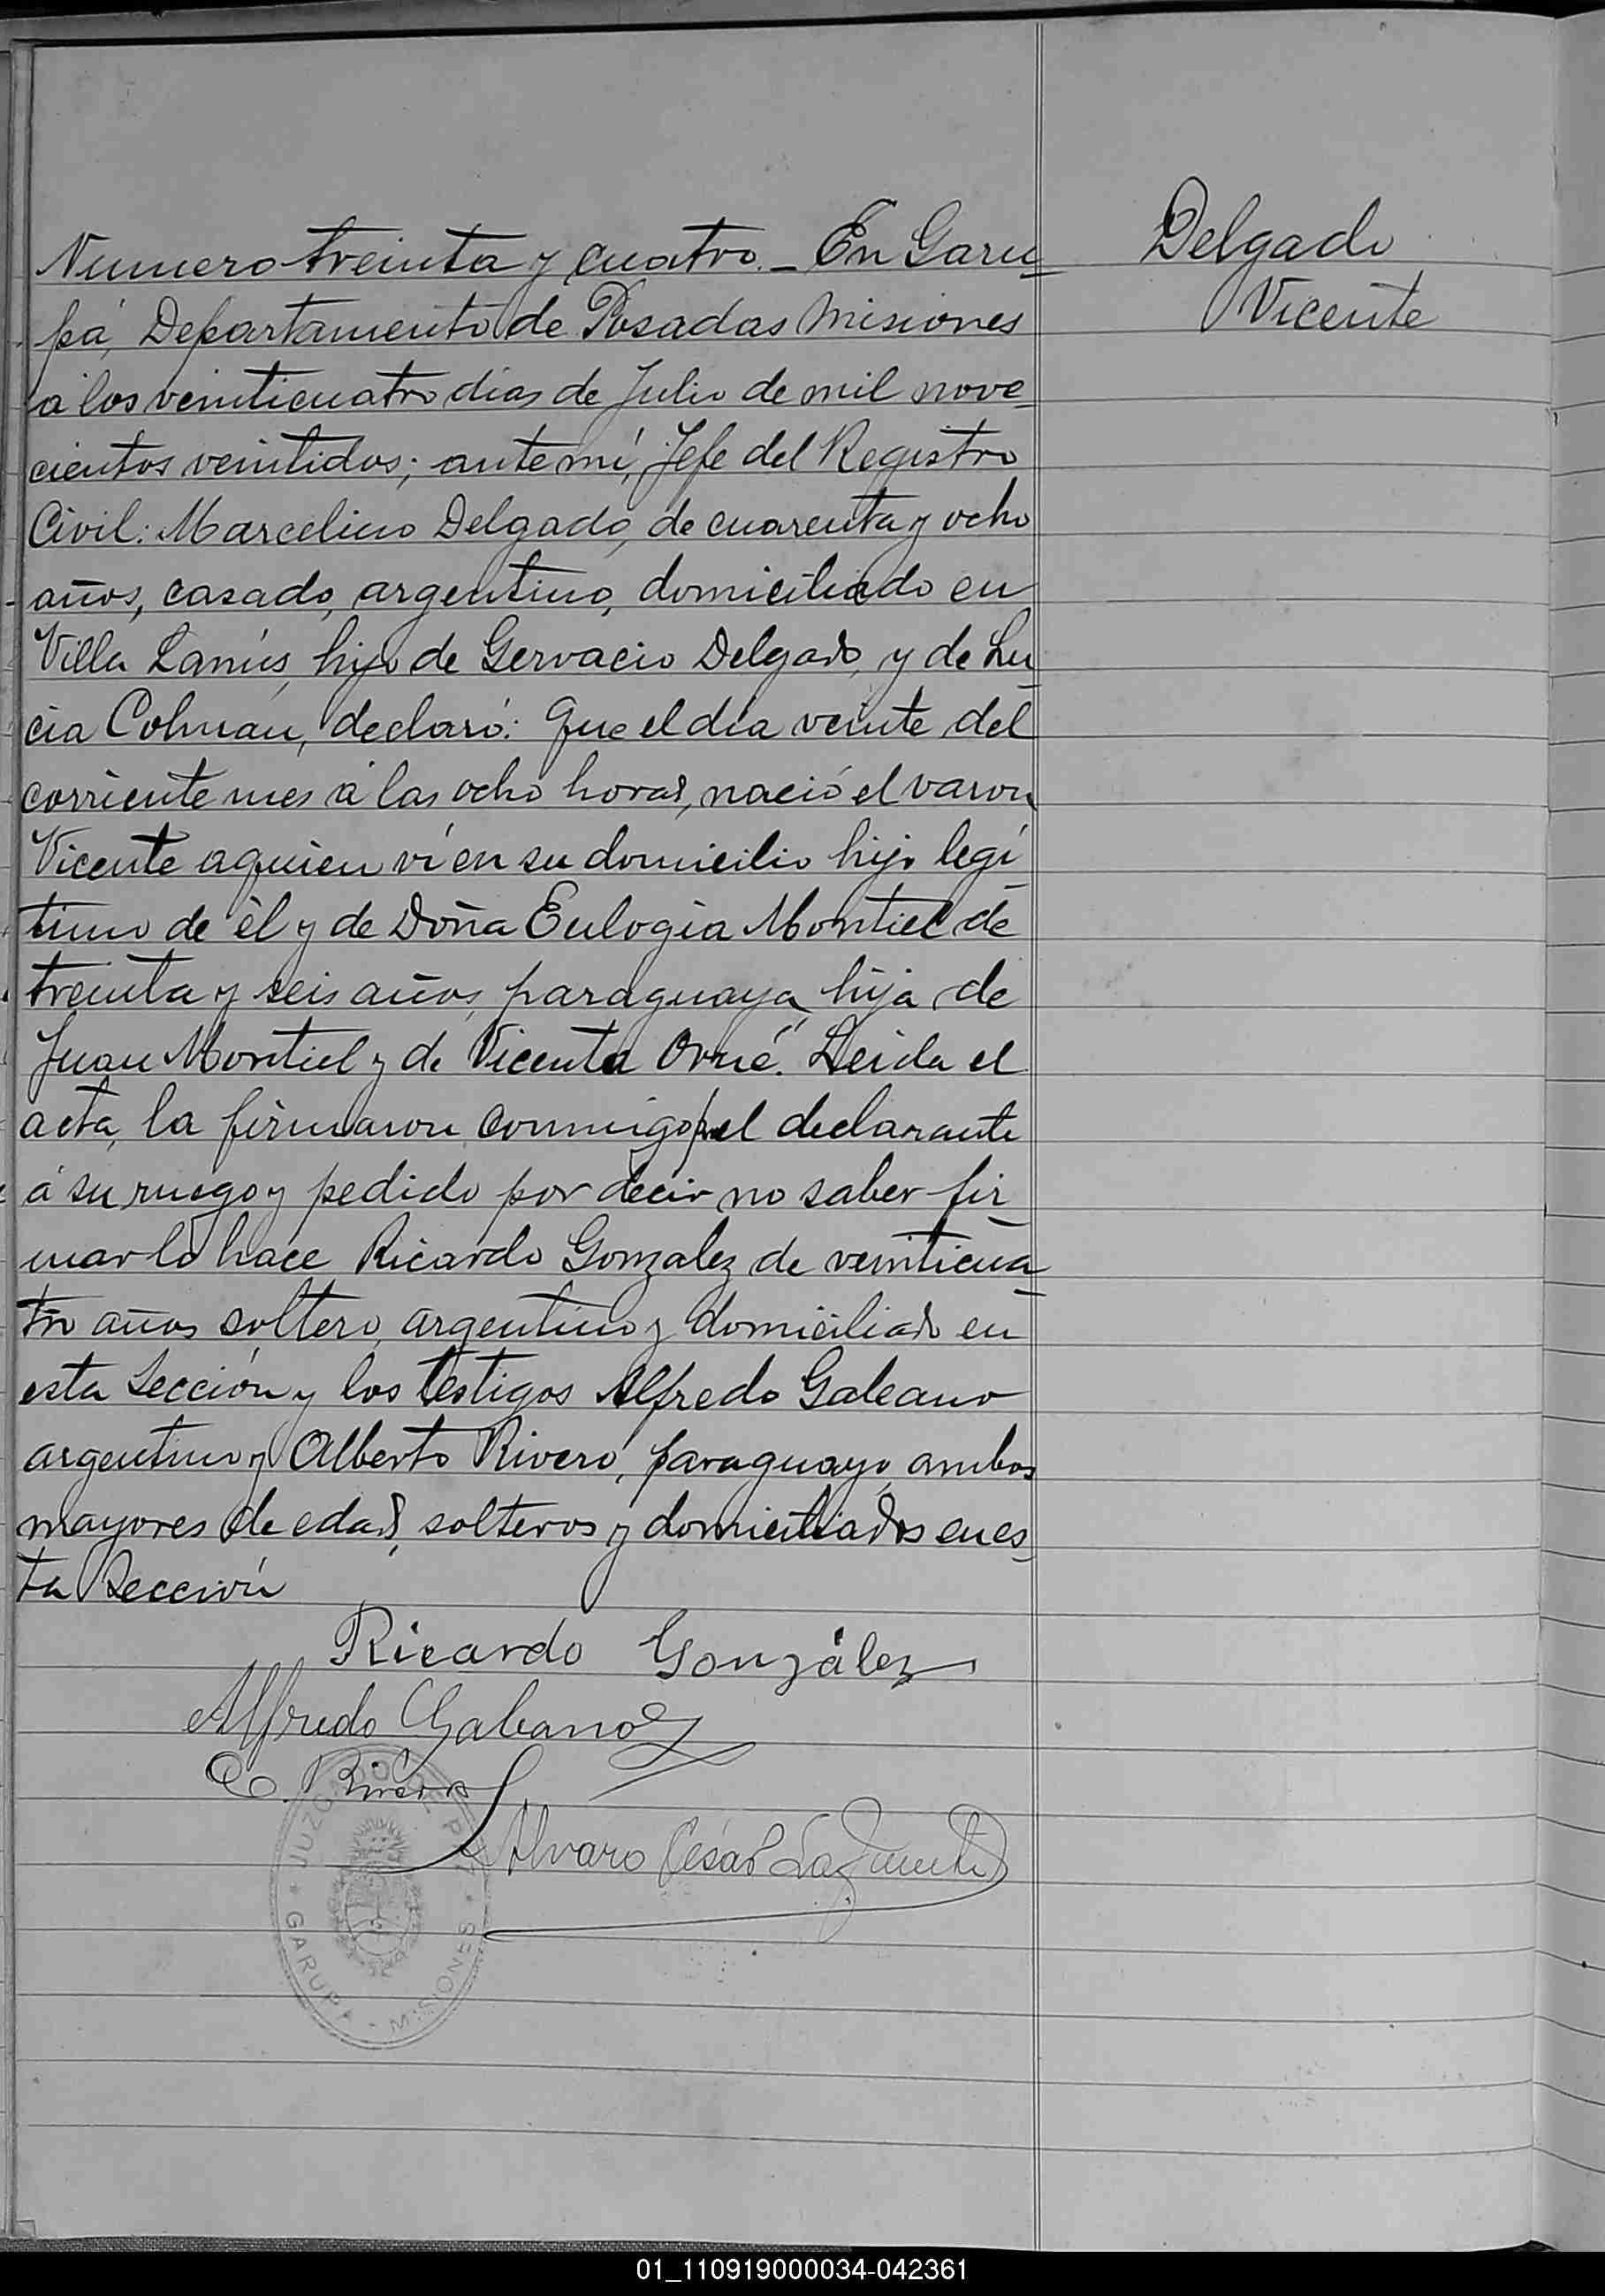 Delgado
Vicente
Numero treinta y cuatro. - En Garu
pá, Departamento de Posadas Misiones
á los veinticuatro dias de Julio de mil nove
cientos veintidos; ante mí, Jefe del Registro
Civil: Marcelino Delgado, de cuarenta y ocho
años, casado, argentino, domiciliado en
Villa Lanús, hijo de Gervacio Delgado, y de Lu
cia Colman, declaró: Que el día veinte del
corriente mes á las ocho horas, nació el varon
Vicente a quien ví en su domicilio hijo legí
timo de él y de Doña Eulogia Montiel de
treinta y seis años, paraguaya, hija de
Juan Montiel y de Vicenta Orué. Leida el
acta, la firmaron conmigo p. el declarante
á su ruego y pedido por decir no saber fir
mar lo hace Ricardo Gonzalez de veinticua
tro años soltero, argentino y domiciliado en
esta Sección y los testigos Alfredo Galeano
argentino y Alberto Rivero, paraguayo, ambos
mayores de edad, solteros y domiciliados en es
ta Sección
Ricardo González
Alfredo Galeano
Rivero
Alvaro César Lafuente
JUZGADO DE PAZ
GARUPA - MISIONES
01_110919000034-042361